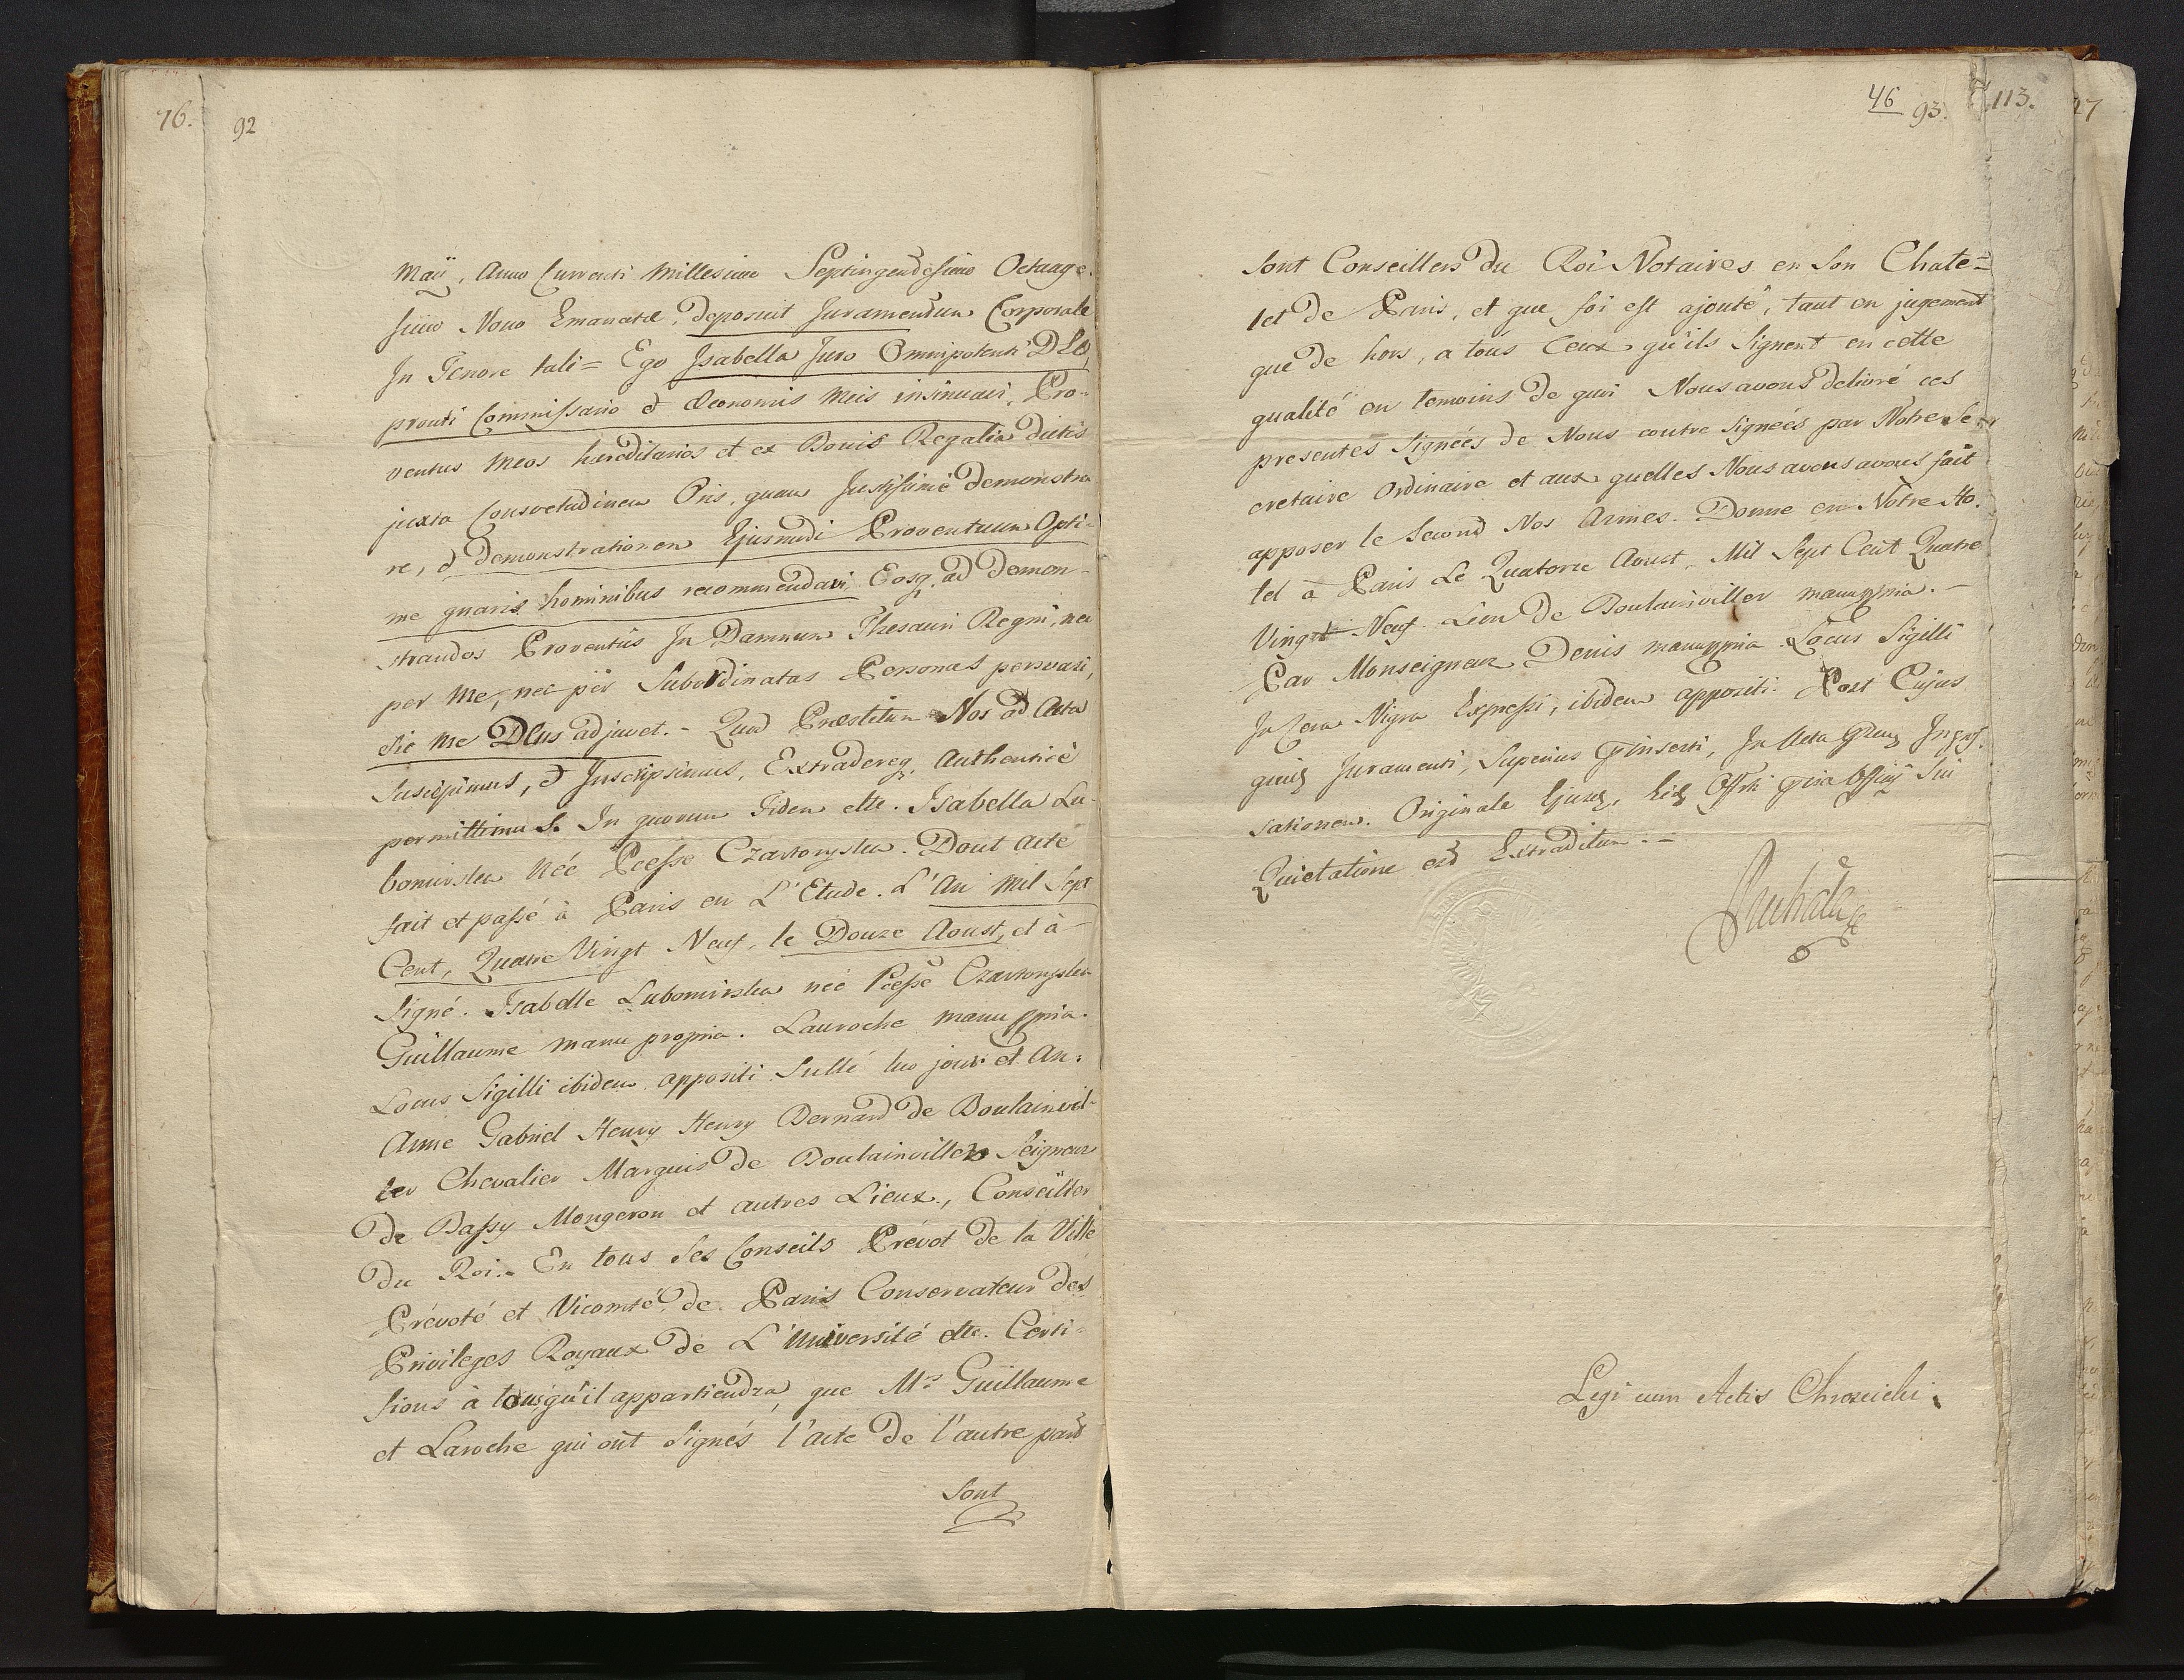 76.
92
Maÿ, Anno Currenti Millesimo Septingentesimo Octuage-
simo Nono Emanatæ, deposuit Juramentum Corporale
In Tenore tali = Ego Isabella Juro Omnipotenti DEO,
prouti Commissario et Œconomis Meis insinuavi, Pro-
ventus Meos hæreditarios et ex Bonis Regalia dictis
juxta Consvetudinem Oris, quam Justissimè demonstra
re, et demonstrationem Ejusmodi Proventuum Opti-
me gnaris hominibus recommendavi Eosq. ad demon-
strandos Proventus In Damnum Thesauri Regni, nec
per Me, nec per Subordinatas Personas persvasi,
sic Me DEus adjuvet. - Quod Præstitum Nos ad Acta
Suscepimus, et Inscripsimus, Extradereq. Authenticè
permittimus. In quorum Fidem ette. Isabella Lu-
bomirska Née Pcesse Czartoryska. Dont Acte
fait et passé à Paris en L'Etude. L'An Mil Sept
Cent, Quatre Vingt Neuf, le Douze Aoust, et à
Signé. Isabelle Lubomirska neé Pcesse Czartoryska
Guillaume manu propria. Lauroche manu ppria.
Locus Sigilli ibidem appositi Sullé luo jour et An:
Anne Gabriel Henry Henry Bernard de Boulainvil-
ler Chevalier Marquis de Boulainviller Seigneur
de Passy Mongeron et autres Lieux, Conseiller
du Roi. En tous Ses Conseils Prévot de la Ville
Prévoté et Vicomté de Paris Conservateur des
Privileges Royaux de L'Université ette. Certi-
fions à tous qu'il appartiendra, que Mrs Guillaume
et Laroche qui ont Signés l'acte de l'autre part
Sont
46
93.
113.
27
Sont Conseillers du Roi Notaires en Son Chate=
let de Paris, et que foi est ajouté, tant en jugement
que de hors, a tous Ceux qu'ils Signent en cette
qualité en temoins de qui Nous avons delivré ces
presentes Signées de Nous contre Signeés par Notre Se-
cretaire Ordinaire et aux quelles Nous avons avons fait
apposer le Second Nos Armes. Donne en Notre Ho.
tel à Paris Le Quatorze Aoust. Mil Sept Cent Quatre
Vingt Neuf. Lieu de Boulainviller manuppria. -
Par Monseigneur Denis manuppria. Locus Sigilli
In Cera Nigra Expressi, ibidem appositi. Post Cujus
quidz Juramenti, Superius insertæ, In Acta
sationem. Originale Ejusdz,
Quietatione est Extraditum. =
Legi cum Actis